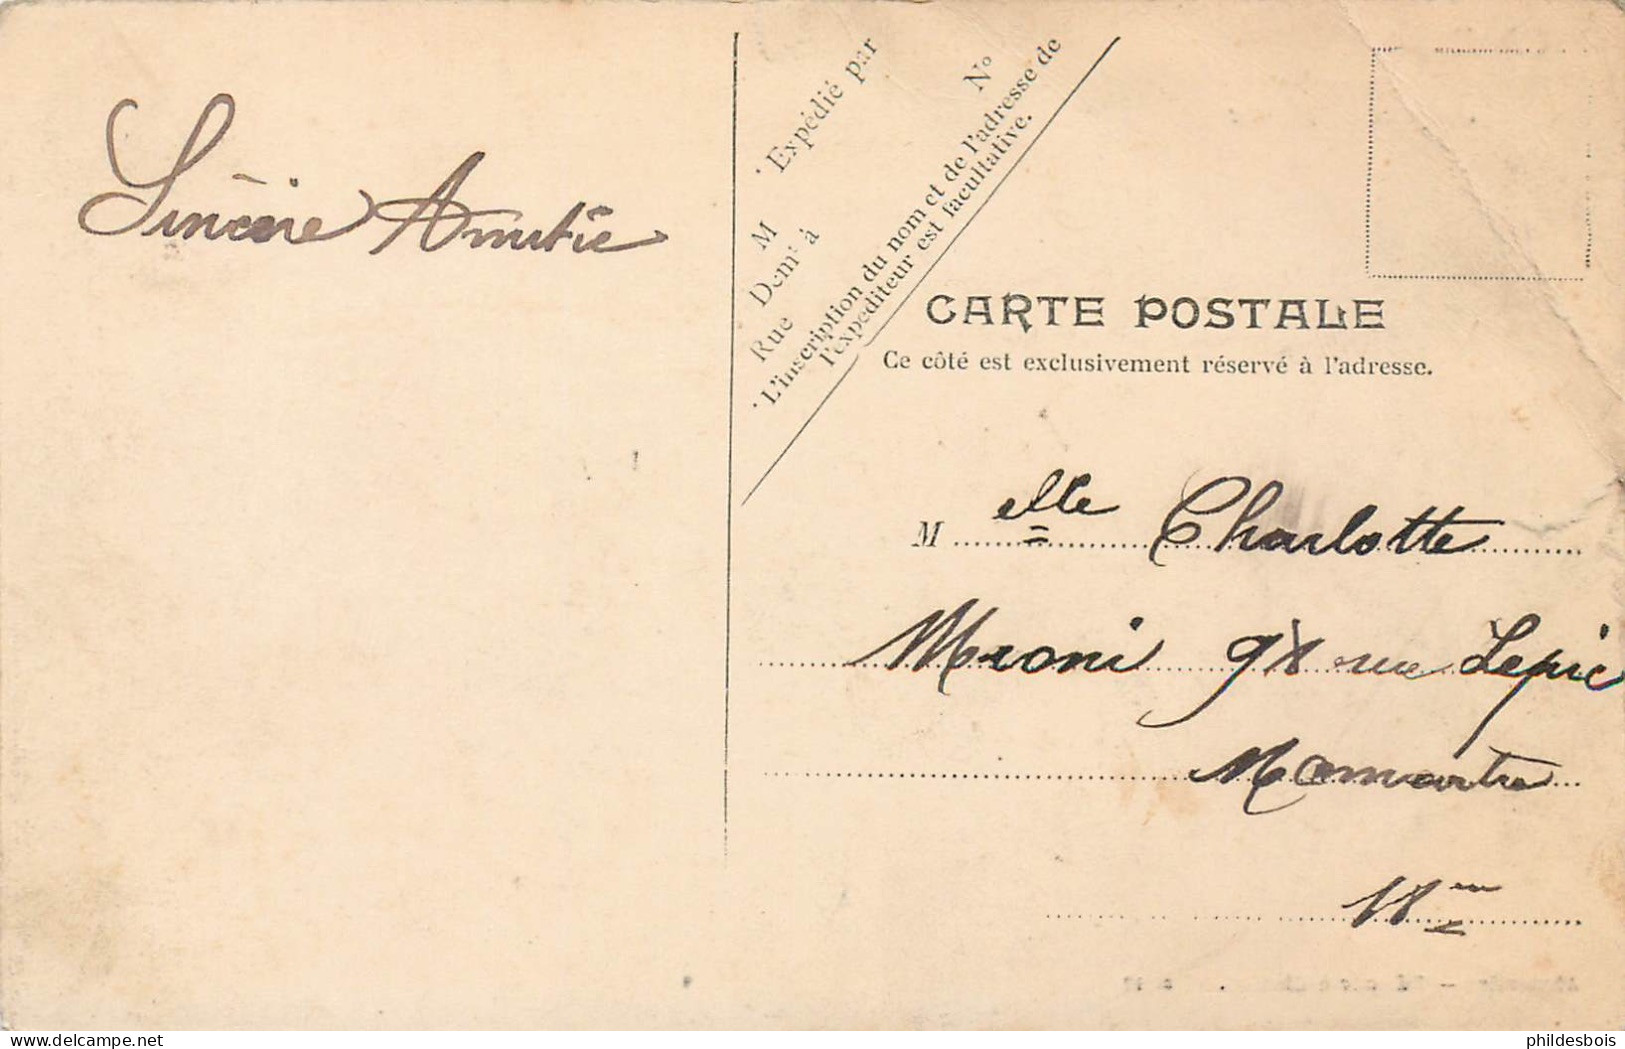 Sincère Amitié
Expédié par
M
Demt à
Rue N°
L'inscription du nom et de l'adresse de
l'expéditeur est facultative.
CARTE POSTALE
Ce côté est exclusivement réservé à l'adresse.
M elle Charlotte
Meoni 98 rue Lepic
Momartre
18em
phildesbois